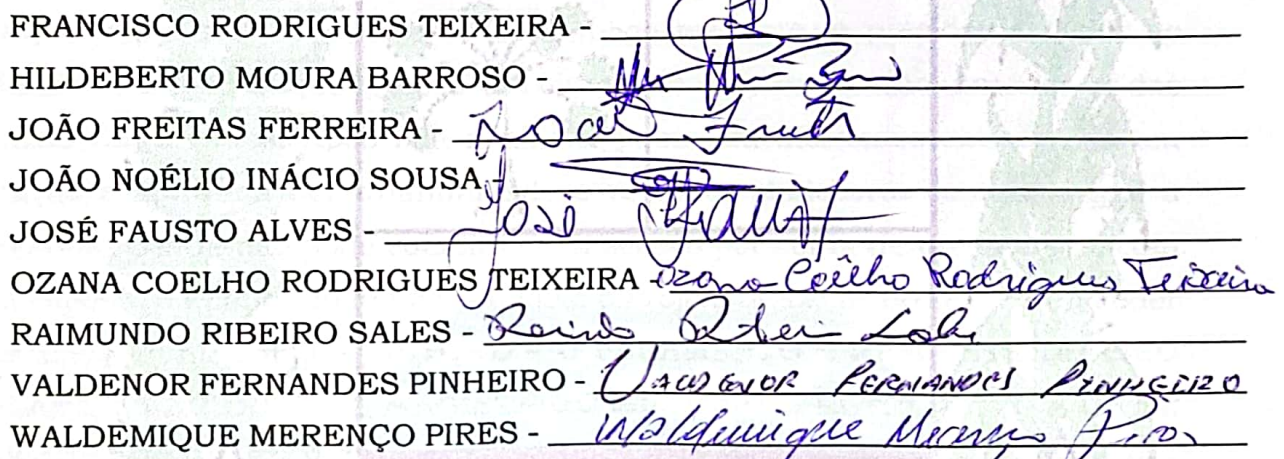 FRANCISCO RODRIGUES TEIXEIRA -
HILDEBERTO MOURA BARROSO -
JOÃO FREITAS FERREIRA -
JOÃO NOÉLIO INÁCIO SOUSA -
JOSÉ FAUSTO ALVES - José
OZANA COELHO RODRIGUES TEIXEIRA - Ozana Coêlho Rodrigues Teixeira
RAIMUNDO RIBEIRO SALES -
VALDENOR FERNANDES PINHEIRO - VALDENOR FERNANDES PINHEIRO
WALDEMIQUE MERENÇO PIRES - Waldemique Merenço Pires